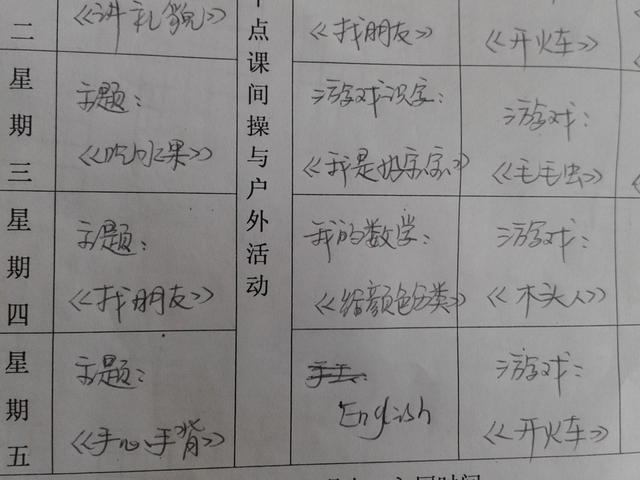 二
《讲礼貌》
《找朋友》
《开火车》
星期三
主题：
《吃水果》
点课间操与户外活动
游戏识字：
《我是好宝宝》
游戏：
《毛毛虫》
星期四
主题：
《找朋友》
我的数学：
《给颜色分类》
游戏：
《木头人》
星期五
主题：
《手心、手背》
手工：
English
游戏：
《开火车》